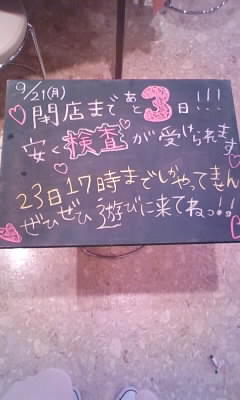 9/21(月)
閉店まであと3日!!!
安く検査が受けられます
23日17時までしかやってません
ぜひぜひ遊びに来てねっ!!